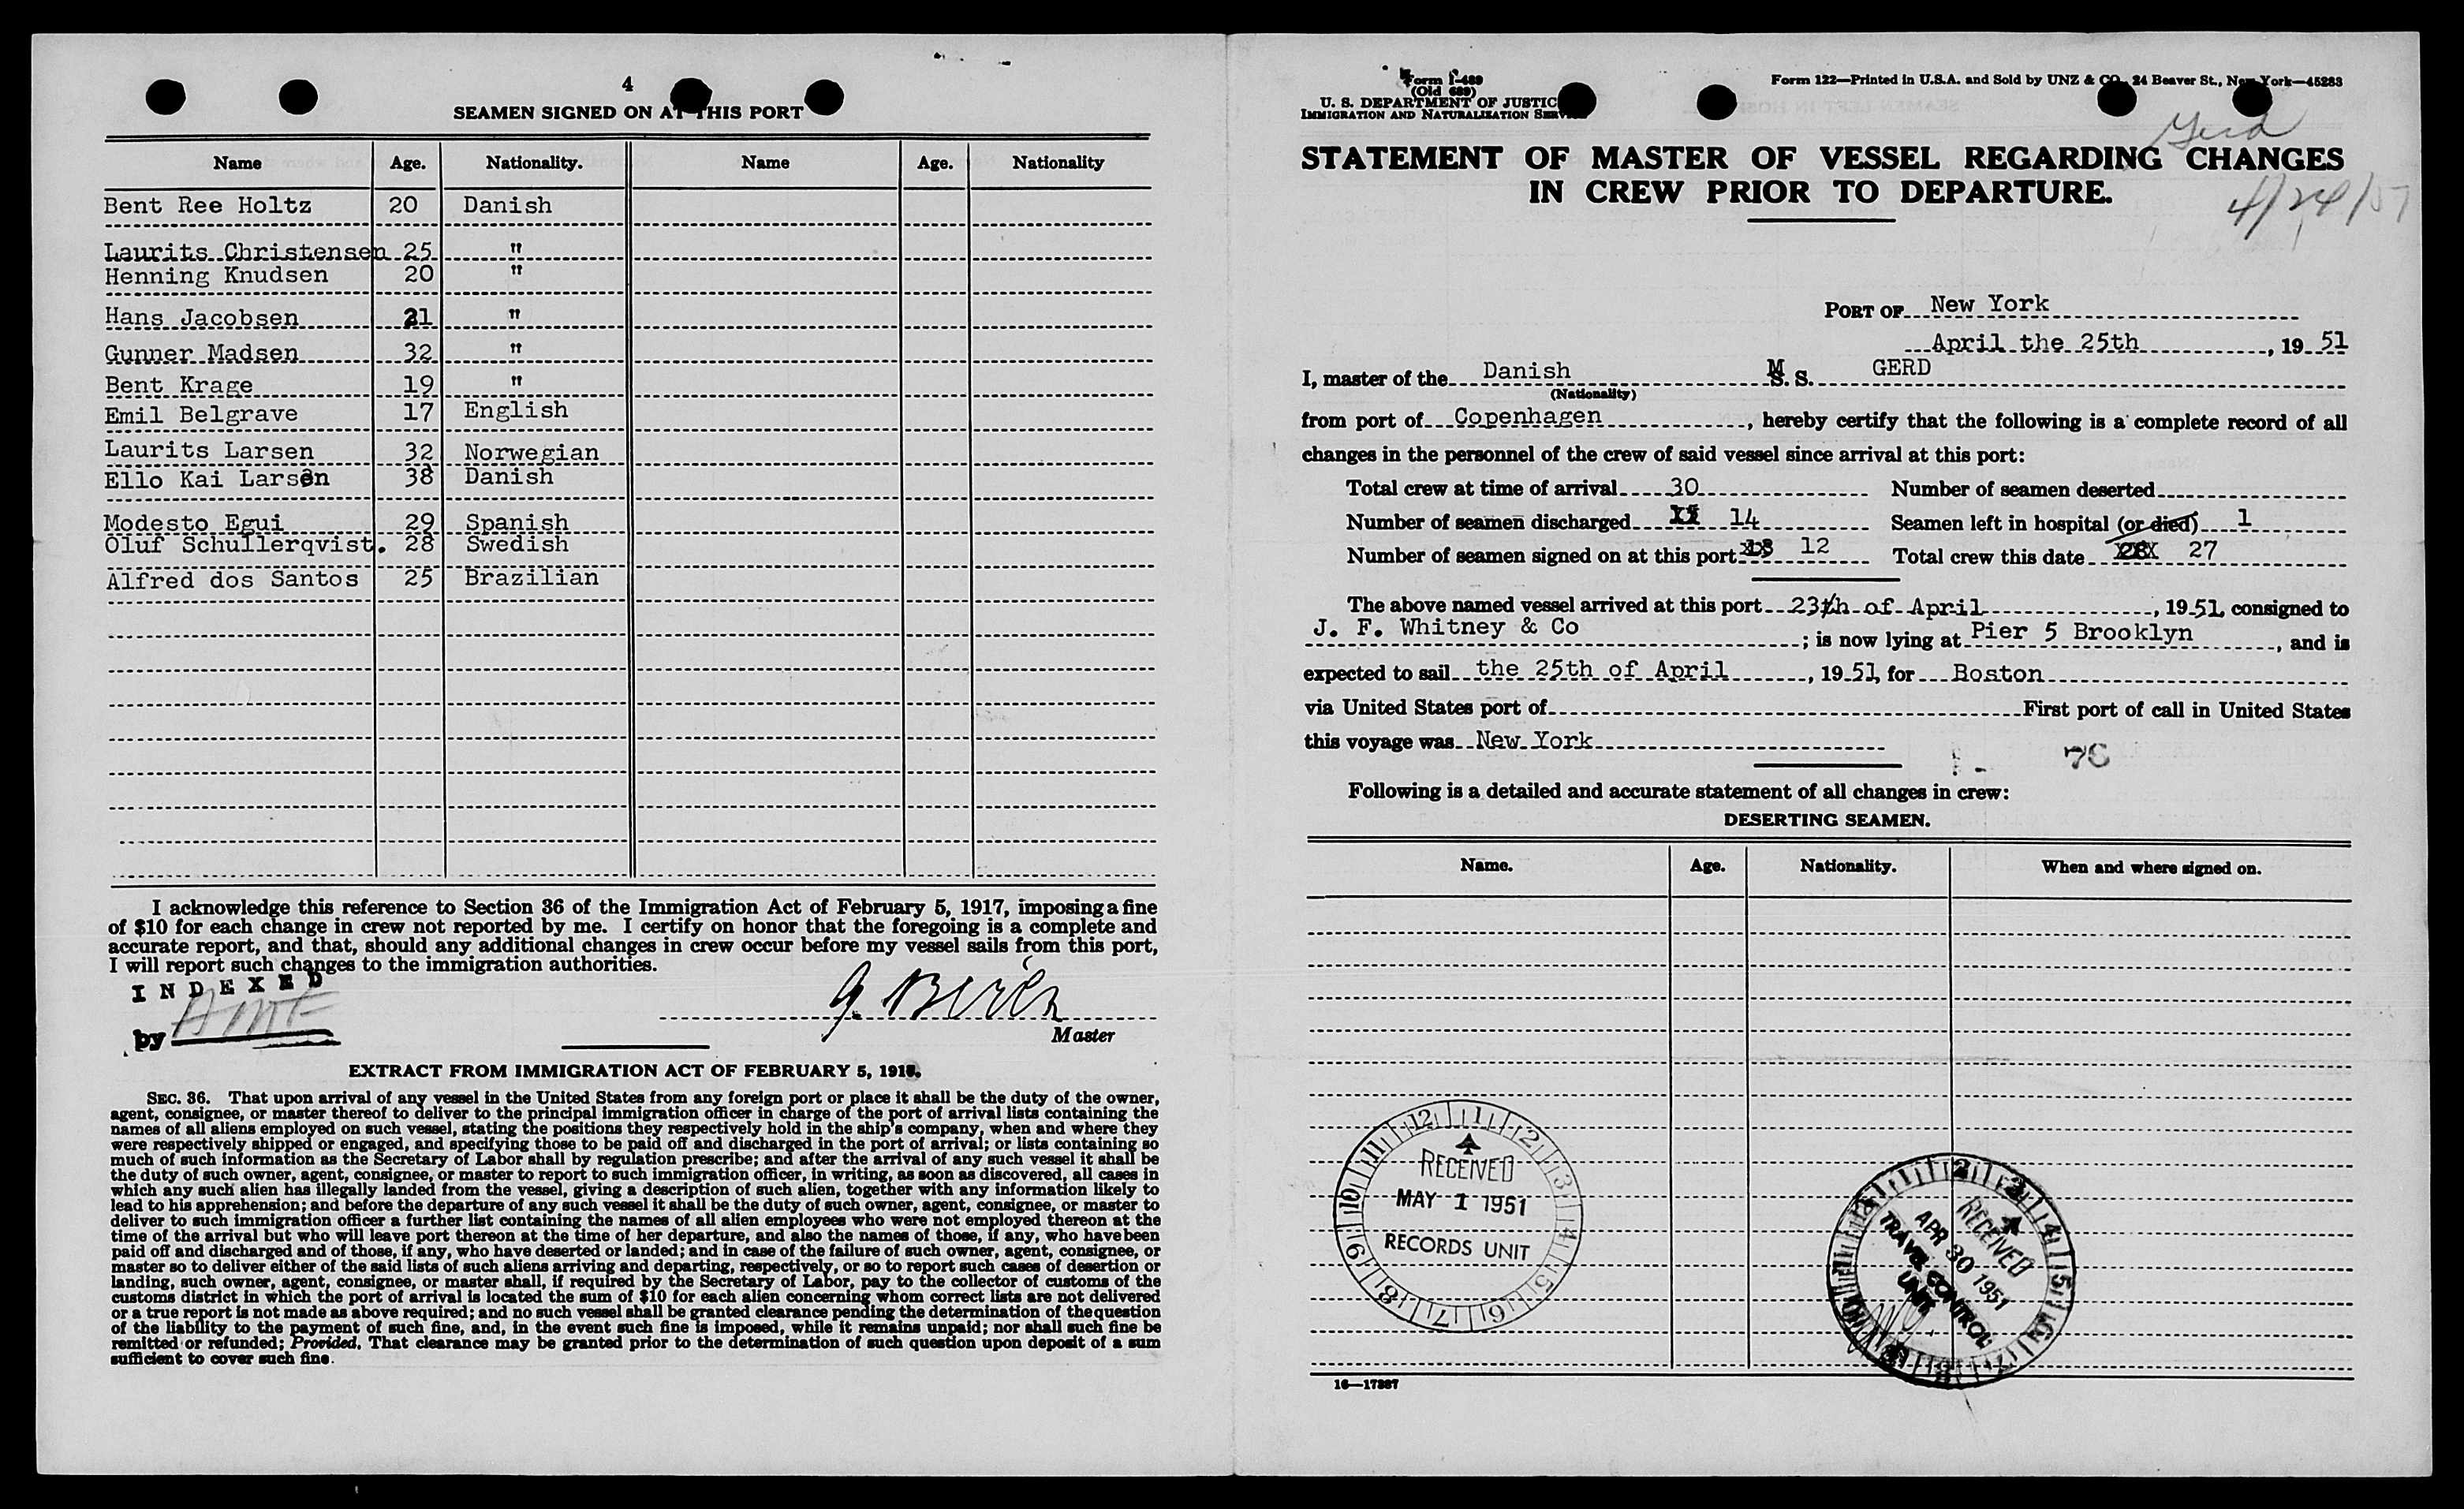 4
SEAMEN SIGNED ON AT THIS PORT
Name Age. Nationality. Name Age. Nationality
Bent Ree Holtz 20 Danish
Laurits Christensen 25 "
Henning Knudsen 20 "
Hans Jacobsen 21 "
Gunner Madsen 32 "
Bent Krage 19 "
Emil Belgrave 17 English
Laurits Larsen 32 Norwegian
Ello Kai Larsen 38 Danish
Modesto Egui 29 Spanish
Oluf Schullerqvist. 28 Swedish
Alfred dos Santos 25 Brazilian
I acknowledge this reference to Section 36 of the Immigration Act of February 5, 1917, imposing a fine
of $10 for each change in crew not reported by me. I certify on honor that the foregoing is a complete and
accurate report, and that, should any additional changes in crew occur before my vessel sails from this port,
I will report such changes to the immigration authorities.
INDEXED
by
Master
EXTRACT FROM IMMIGRATION ACT OF FEBRUARY 5,
SEC. 36. That upon arrival of any vessel in the United States from any foreign port or place it shall be the duty of the owner,
agent, consignee, or master thereof to deliver to the principal immigration officer in charge of the port of arrival lists containing the
names of all aliens employed on such vessel, stating the positions they respectively hold in the ship's company, when and where they
were respectively shipped or engaged, and specifying those to be paid off and discharged in the port of arrival; or lists containing so
much of such information as the Secretary of Labor shall by regulation prescribe; and after the arrival of any such vessel it shall be
the duty of such owner, agent, consignee, or master to report to such immigration officer, in writing, as soon as discovered, all cases in
which any such alien has illegally landed from the vessel, giving a description of such alien, together with any information likely to
lead to his apprehension; and before the departure of any such vessel it shall be the duty of such owner, agent, consignee, or master to
deliver to such immigration officer a further list containing the names of all alien employees who were not employed thereon at the
time of the arrival but who will leave port thereon at the time of her departure, and also the names of those, if any, who have been
paid off and discharged and of those, if any, who have deserted or landed; and in case of the failure of such owner, agent, consignee, or
master so to deliver either of the said lists of such aliens arriving and departing, respectively, or so to report such cases of desertion or
landing, such owner, agent, consignee, or master shall, if required by the Secretary of Labor, pay to the collector of customs of the
customs district in which the port of arrival is located the sum of $10 for each alien concerning whom correct lists are not delivered
or a true report is not made as above required; and no such vessel shall be granted clearance pending the determination of the question
of the liability to the payment of such fine, and, in the event such fine is imposed, while it remains unpaid; nor shall such fine be
remitted or refunded; Provided, That clearance may be granted prior to the determination of such question upon deposit of a sum
sufficient to cover such fine.
Form I-489
(Old 689)
U. S. DEPARTMENT OF JUSTICE
IMMIGRATION AND NATURALIZATION SERVICE
Form 122—Printed in U.S.A. and Sold by UNZ & CO., 24 Beaver St., New York—45283
Gerd
STATEMENT OF MASTER OF VESSEL REGARDING CHANGES
IN CREW PRIOR TO DEPARTURE.
4/24/51
PORT OF New York
April the 25th, 19 51
I, master of the Danish M. S. GERD
(Nationality)
from port of Copenhagen, hereby certify that the following is a complete record of all
changes in the personnel of the crew of said vessel since arrival at this port:
Total crew at time of arrival 30 Number of seamen deserted
Number of seamen discharged 14 Seamen left in hospital (or died) 1
Number of seamen signed on at this port 12 Total crew this date 27
The above named vessel arrived at this port 23th of April, 19 51, consigned to
J. F. Whitney & Co; is now lying at Pier 5 Brooklyn, and is
expected to sail the 25th of April, 19 51, for Boston
via United States port of First port of call in United States
this voyage was New York
76
Following is a detailed and accurate statement of all changes in crew:
DESERTING SEAMEN.
Name. Age. Nationality. When and where signed on.
RECEIVED
MAY 1 1951
RECORDS UNIT
RECEIVED
APR 30 1951
TRAVEL CONTROL
UNIT
16—17887